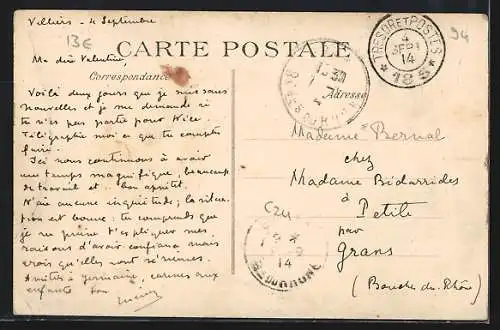 Velliers - 4 Septembre
13€
94
CARTE POSTALE
Correspondance
Adresse
TRESOR ET POSTES
4
SEPT
14
* 125 *
Ma chère Valentine,
Voilà deux jours que je suis sans
nouvelles et je me demande si
tu n'es pas partie pour Nice.
Télégraphie moi ce que tu comptes
faire.
Ici nous continuons à avoir
un temps magnifique, beaucoup
de travail et .. bon appétit.
N'aie aucune inquiétude; la situa-
tion est bonne; tu comprends que
je ne puisse t'expliquer mes
raisons d'avoir confiance mais
crois qu'elles sont sérieuses.
Amitiés à Germaine, caresses aux
enfants. Ton
Madame Bernal
chez
Madame Bidarrides
à Petite
par
Grans
(Bouches du Rhône)
C24
14